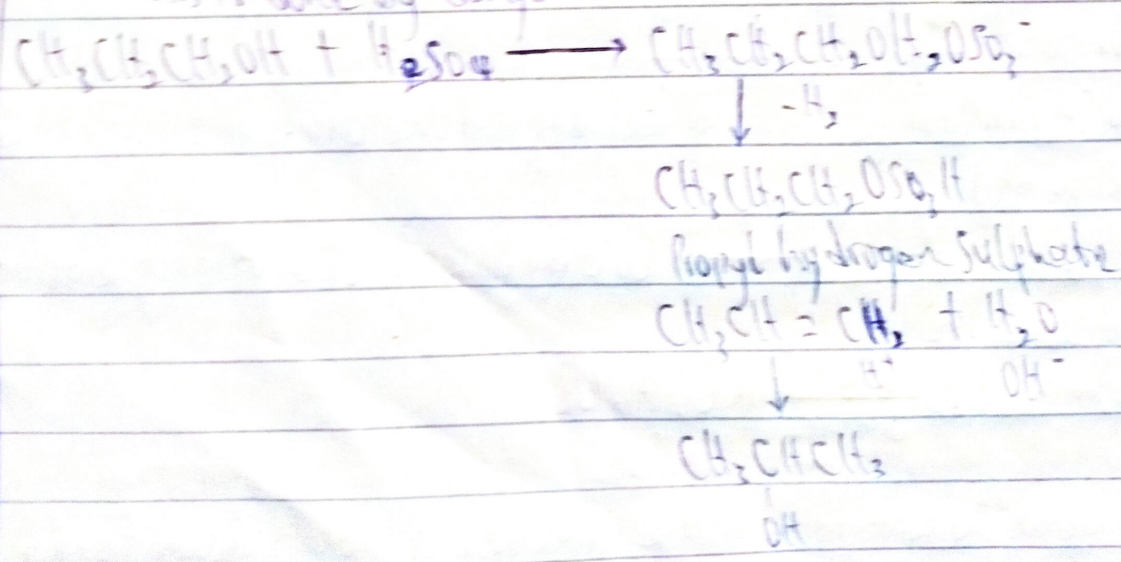 CH₃CH₂CH₂OH + H₂SO₄ ⟶ CH₃CH₂CH₂OH₂OSO₃⁻
↓ -H₂
CH₃CH₂CH₂OSO₃H
Propyl hydrogen Sulphate
CH₃CH = CH₂ + H₂O
↓ H⁺ OH⁻
CH₃CHCH₃
OH